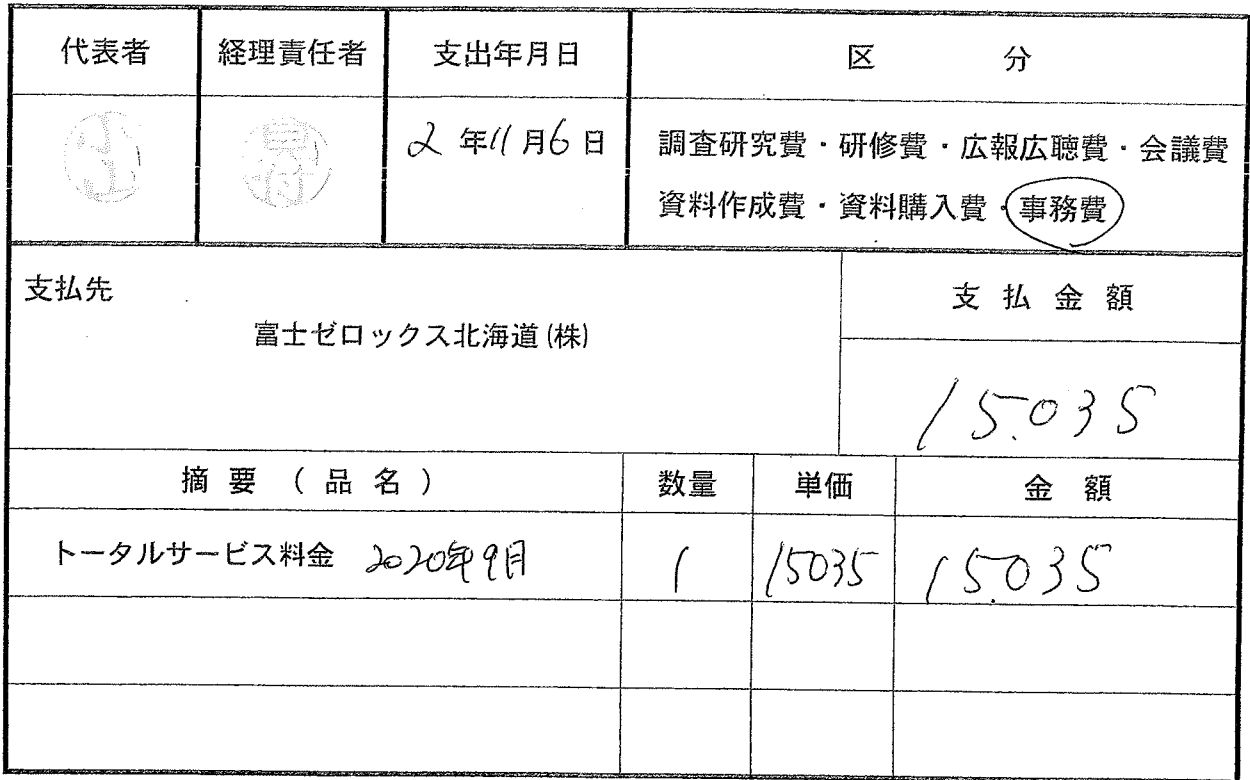 代表者 経理責任者 支出年月日 区 分
2 年11月6日
調査研究費・研修費・広報広聴費・会議費
資料作成費・資料購入費・事務費
支払先
支払金額
富士ゼロックス北海道(株)
15.035
摘要(品名) 数量 単価 金額
トータルサービス料金 2020年9月 1 15035 15.035